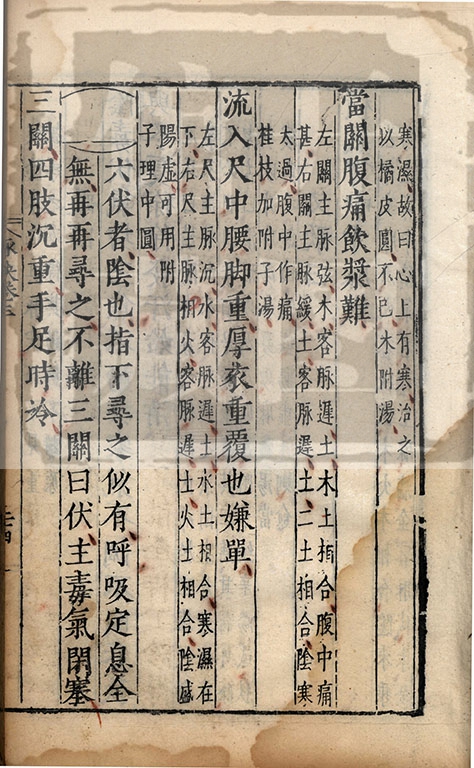 寒濕故曰心上有寒治之
以橘皮圓不已木附湯
當關腹痛飲漿難
左關主脉弦木客脉遲土木土相合腹中痛
甚右關主脉緩土客脉遲土二土相合陰寒
太過腹中作痛
桂枝加附子湯
流入尺中腰脚重厚衣重覆也嫌單
左尺主脉沉水客脉遲土水土相合寒濕在
下右尺主脉相火客脉遲土火土相合陰盛
陽虛可用附
子理中圓
六伏者陰也指下尋之似有呼吸定息全
無再再尋之不離三關曰伏主毒氣閉塞
三關四肢沉重手足時冷